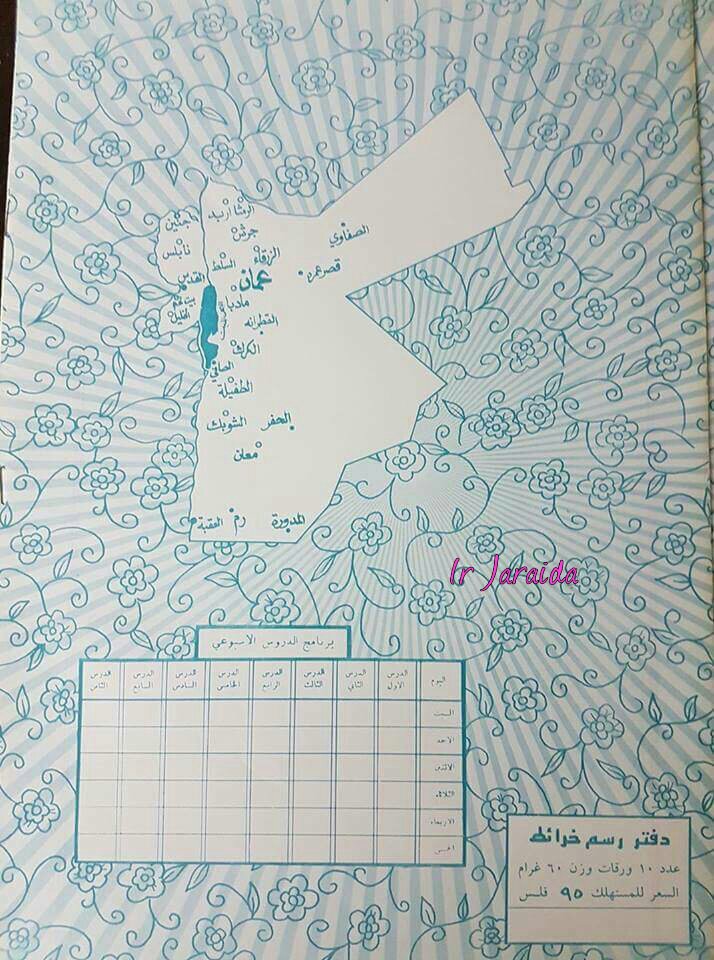 الرمثا
اربد
جنين
جرش
نابلس
الزرقاء
السلط
الصفاوي
قصر عمره
عمان
القدس
مادبا
بيت لحم
الخليل
القطرانه
الكرك
الصافي
الطفيلة
الشوبك
الجفر
معان
المدورة
رم
العقبة
Ir Jaraida
برنامج الدروس الاسبوعي
اليوم الدرس الاول الدرس الثاني الدرس الثالث الدرس الرابع الدرس الخامس الدرس السادس الدرس السابع الدرس الثامن
السبت
الاحد
الاثنين
الثلاثاء
الاربعاء
الخميس
دفتر رسم خرائط
عدد ١٠ ورقات وزن ٦٠ غرام
السعر للمستهلك ٩٥ فلس